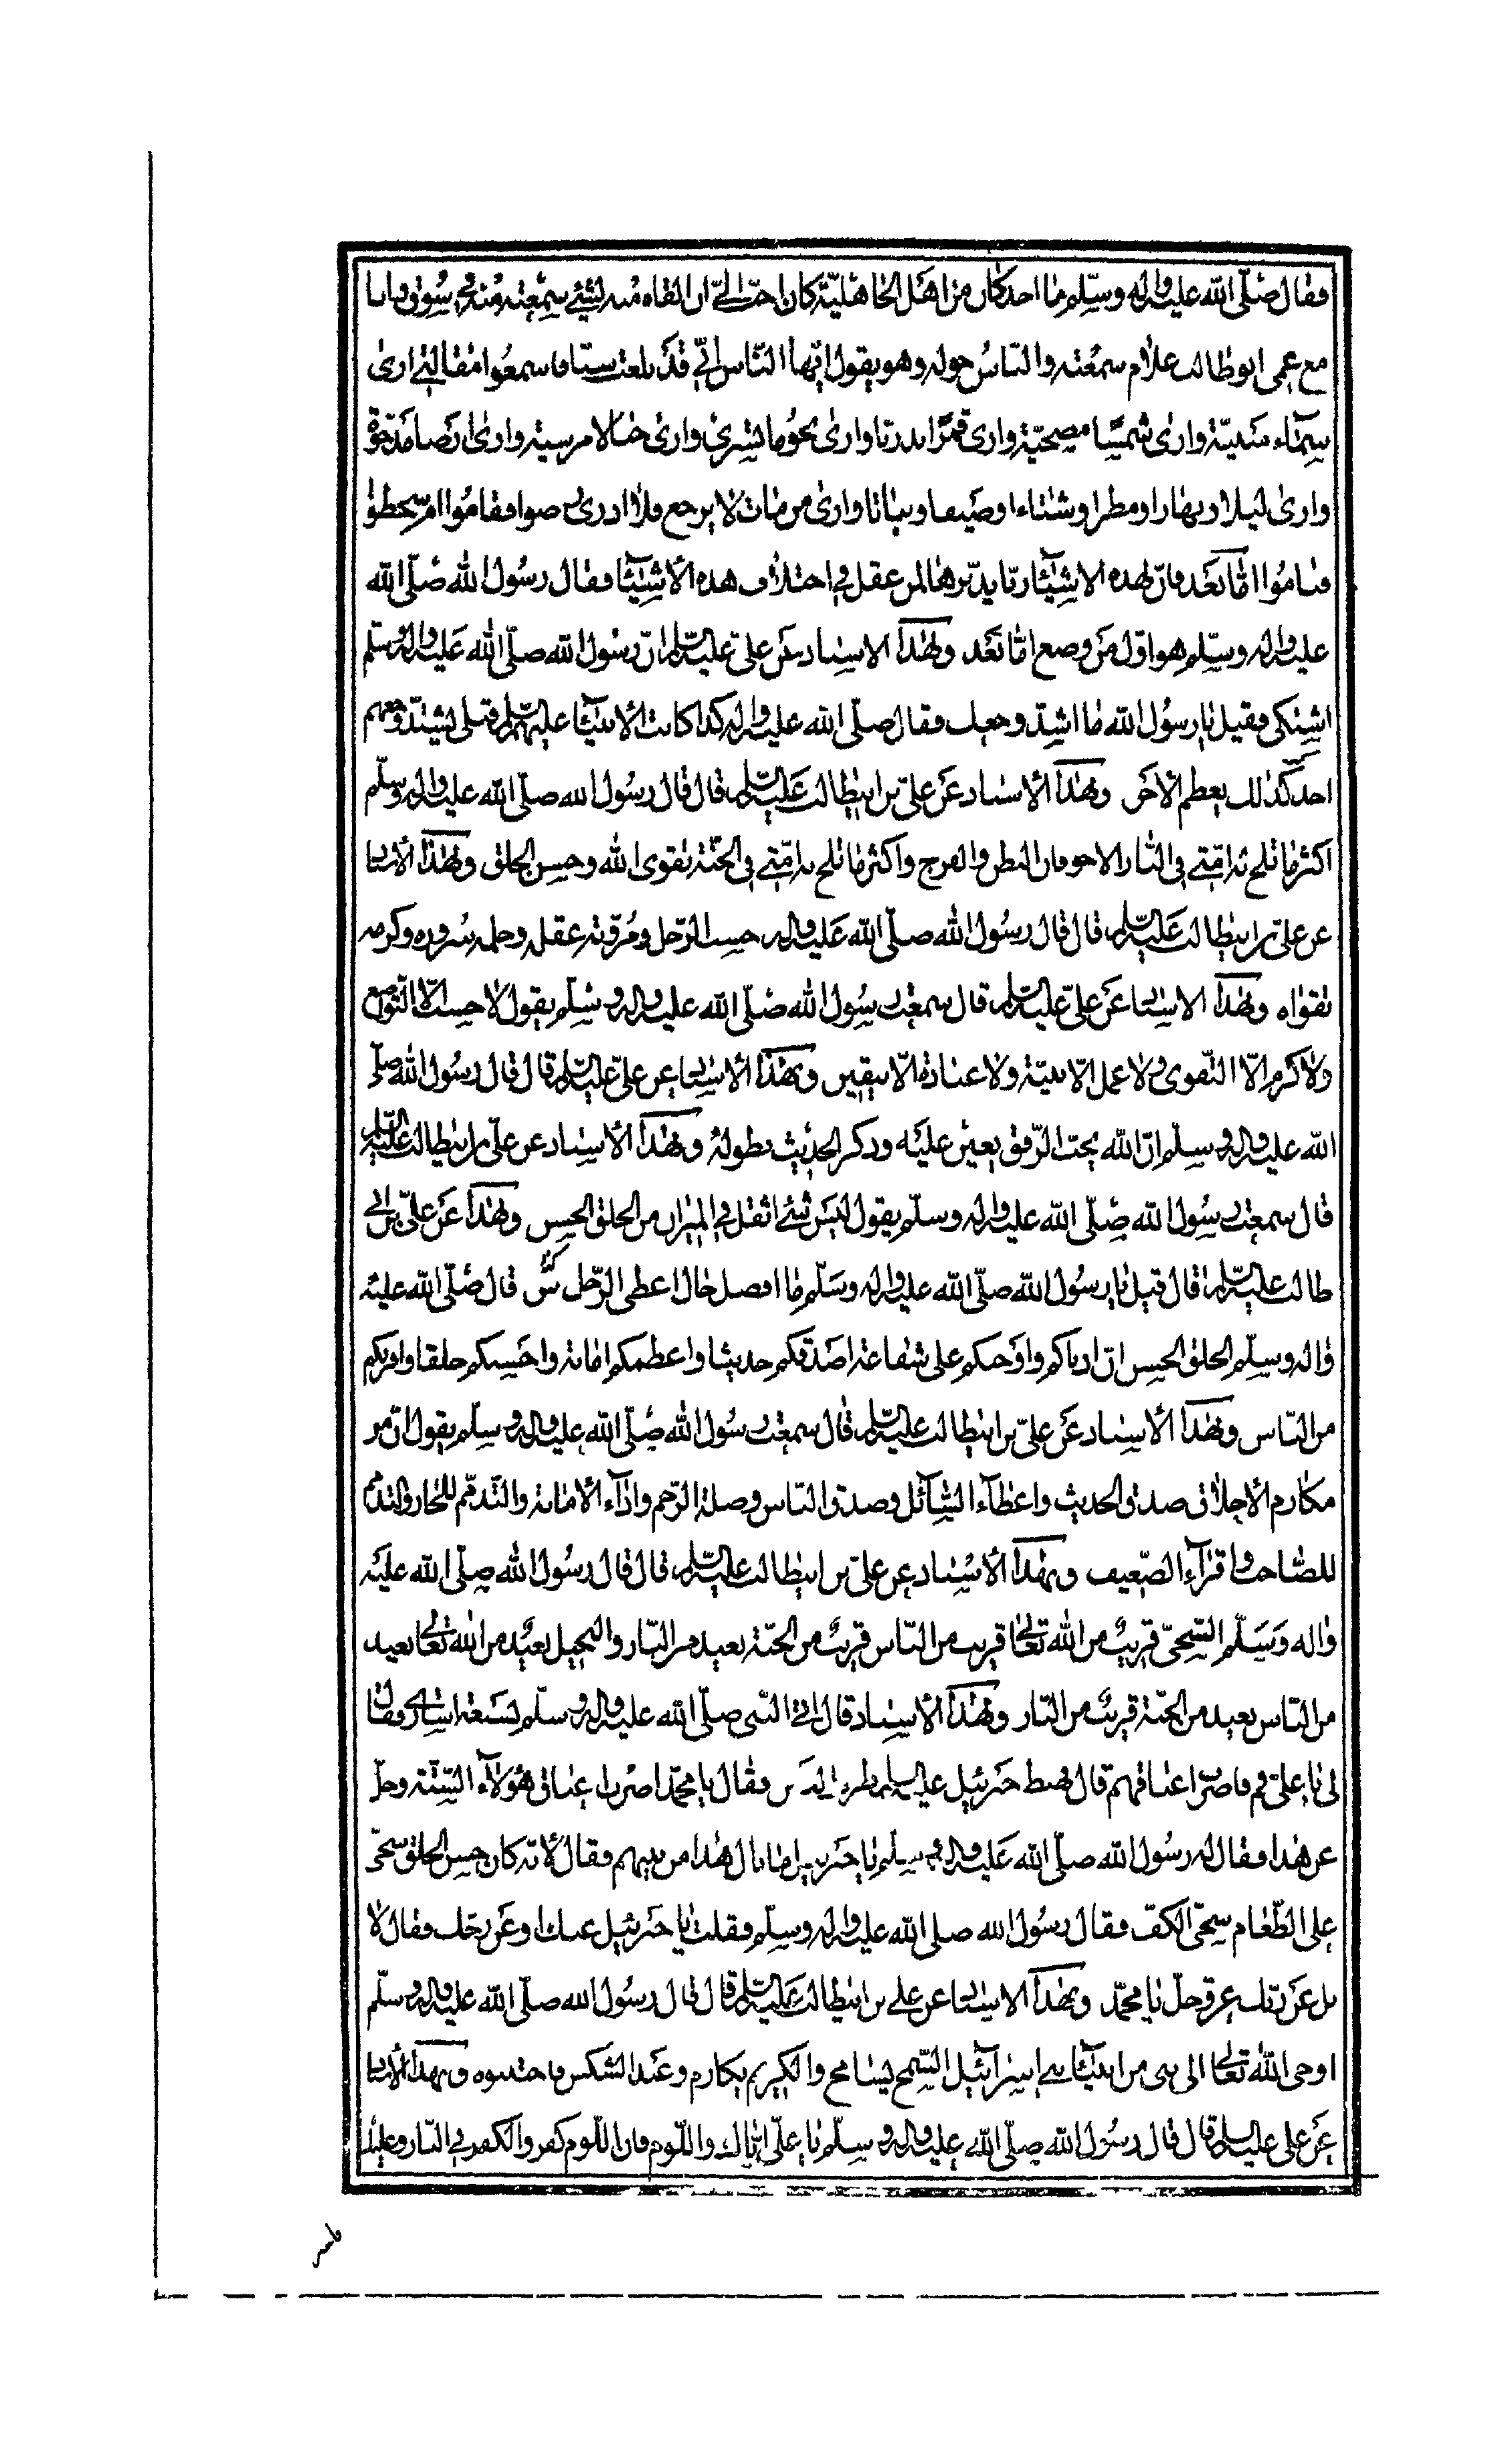 فقال صلّى الله عليه واله وسلّم ما احد كان من اهل الجاهليّة كان احبّ الىّ ان القاه منه لشئ سمعته منه فى سوق وانا
مع عمى ابو طالب غلام سمعته والنّاس حوله وهو يقول ايّها النّاس انّى قد بلغت سنّا فاسمعوا مقالتى ارى
سمآء مبنيّة وارى شمسا مصحيّة وارى قمرا بدريّا وارى نجوما تسرى وارى جبالا مرسية وارى ارضا مدحوّة
وارى ليلا ونهارا ومطرا وشتاءا وصيفا ونباتا وارى من مات لا يرجع فلا ادرى رضوا فقاموا ام سخطوا
فناموا امّا بعد فانّ لهذه الاشيآء ربّا يدبّرها لمن عقل فى اختلاف هذه الأشيآء فقال رسول الله صلّى الله
عليه واله وسلّم هو اوّل من وضع امّا بعد وبهذا الاسناد عن علىّ عليه السّلم انّ رسول الله صلّى الله عليه واله وسلّم
اشتكى فقيل يا رسول الله ما اشدّ وجعك فقال صلّى الله عليه واله كذا كانت الأنبيآء عليهم السّلم قبلى يشتدّ وجعهم
احد كذلك يعظم الأخر وبهذا الأسناد عن علىّ بن ابيطالب عليه السّلم قال قال رسول الله صلّى الله عليه واله وسلّم
اكثر ما تلج به امّتى فى النّار الاجوفان البطن والفرج واكثر ما تلج به امّتى فى الجنّة تقوى الله وحسن الخلق وبهذا الأسنا
عن علىّ بن ابيطالب عليه السّلم قال قال رسول الله صلّى الله عليه واله حسب الرّجل ومروّته عقله وحلمه سروره وكرمه
تقواه وبهذا الاسنا عن علىّ عليه السّلم قال سمعت رسول الله صلّى الله عليه واله وسلّم يقول لا حسب الّا التّواضع
ولا كرم الّا التّقوى ولا عمل الّا بنيّة ولا عبادة الّا بيقين وبهذا الأسنا عن علىّ عليه السّلم قال قال رسول الله صلّى
الله عليه واله وسلّم انّ الله يحبّ الرّفق يعين عليه وذكر الحديث بطوله وبهذا الأسناد عن علىّ بن ابيطالب عليه السّلم
قال سمعت رسول الله صلّى الله عليه واله وسلّم يقول ليس شئ اثقل فى الميزان من الخلق الحسن وبهذا عن علىّ بن ابى
طالب عليه السّلم قال قيل يا رسول الله صلّى الله عليه واله وسلّم ما افضل حال اعطى الرّجل قال صلّى الله عليه
واله وسلّم الخلق الحسن انّ ادناكم واوجبكم على شفاعة اصدقكم حديثا واعظمكم امانة واحسنكم خلقا واقربكم
من النّاس وبهذا الأسناد عن علىّ بن ابيطالب عليه السّلم قال سمعت رسول الله صلّى الله عليه واله وسلّم يقول انّ من
مكارم الأخلاق صدق الحديث واعطآء السّآئل وصدق النّاس وصلة الرّحم واداء الأمانة والتّذمّم للجار والتذمّم
للصّاحب واقرآء الضّيف وبهذا الأسناد عن علىّ بن ابيطالب عليه السّلم قال قال رسول الله صلّى الله عليه
واله وسلّم السّخىّ قريب من الله تعالى قريب من النّاس قريب من الجنّة بعيد من النّار والبخيل بعيد من الله تعالى بعيد
من النّاس بعيد من الجنّة قريب من النّار وبهذا الأسناد قال اتى النّبى صلّى الله عليه واله وسلّم بسبعة اسارى فقال
لى يا علىّ قم فاضرب اعناقهم قال فهبط جبرئيل عليه السلم فقال يا محمّد اضرب اعناق هؤلآء السّتّة وخلّ
عن هذا فقال له رسول الله صلّى الله عليه واله وسلّم يا جبرئيل ما بال هذا من بينهم فقال لأنّه كان حسن الخلق سخىّ
على الطّعام سخىّ الكفّ فقال رسول الله صلى الله عليه واله وسلّم فقلت يا جبرئيل عنك او عن ربّك فقال لا
بل عن ربّك عزّ وجلّ يا محمّد وبهذا الاسنا عن على بن ابيطالب عليه السّلم قال قال رسول الله صلّى الله عليه واله وسلّم
اوحى الله تعالى الى نبى من انبيآء بنى اسرآئيل السّمح يسامح والكريم يكارم وعند الشكس فاجتنبوه وبهذا الأسنا
عن على عليه السلم قال قال رسول الله صلّى الله عليه واله وسلّم يا علىّ ايّاك واللّوم فان اللّوم كفر والكفر فى النّار وعليك